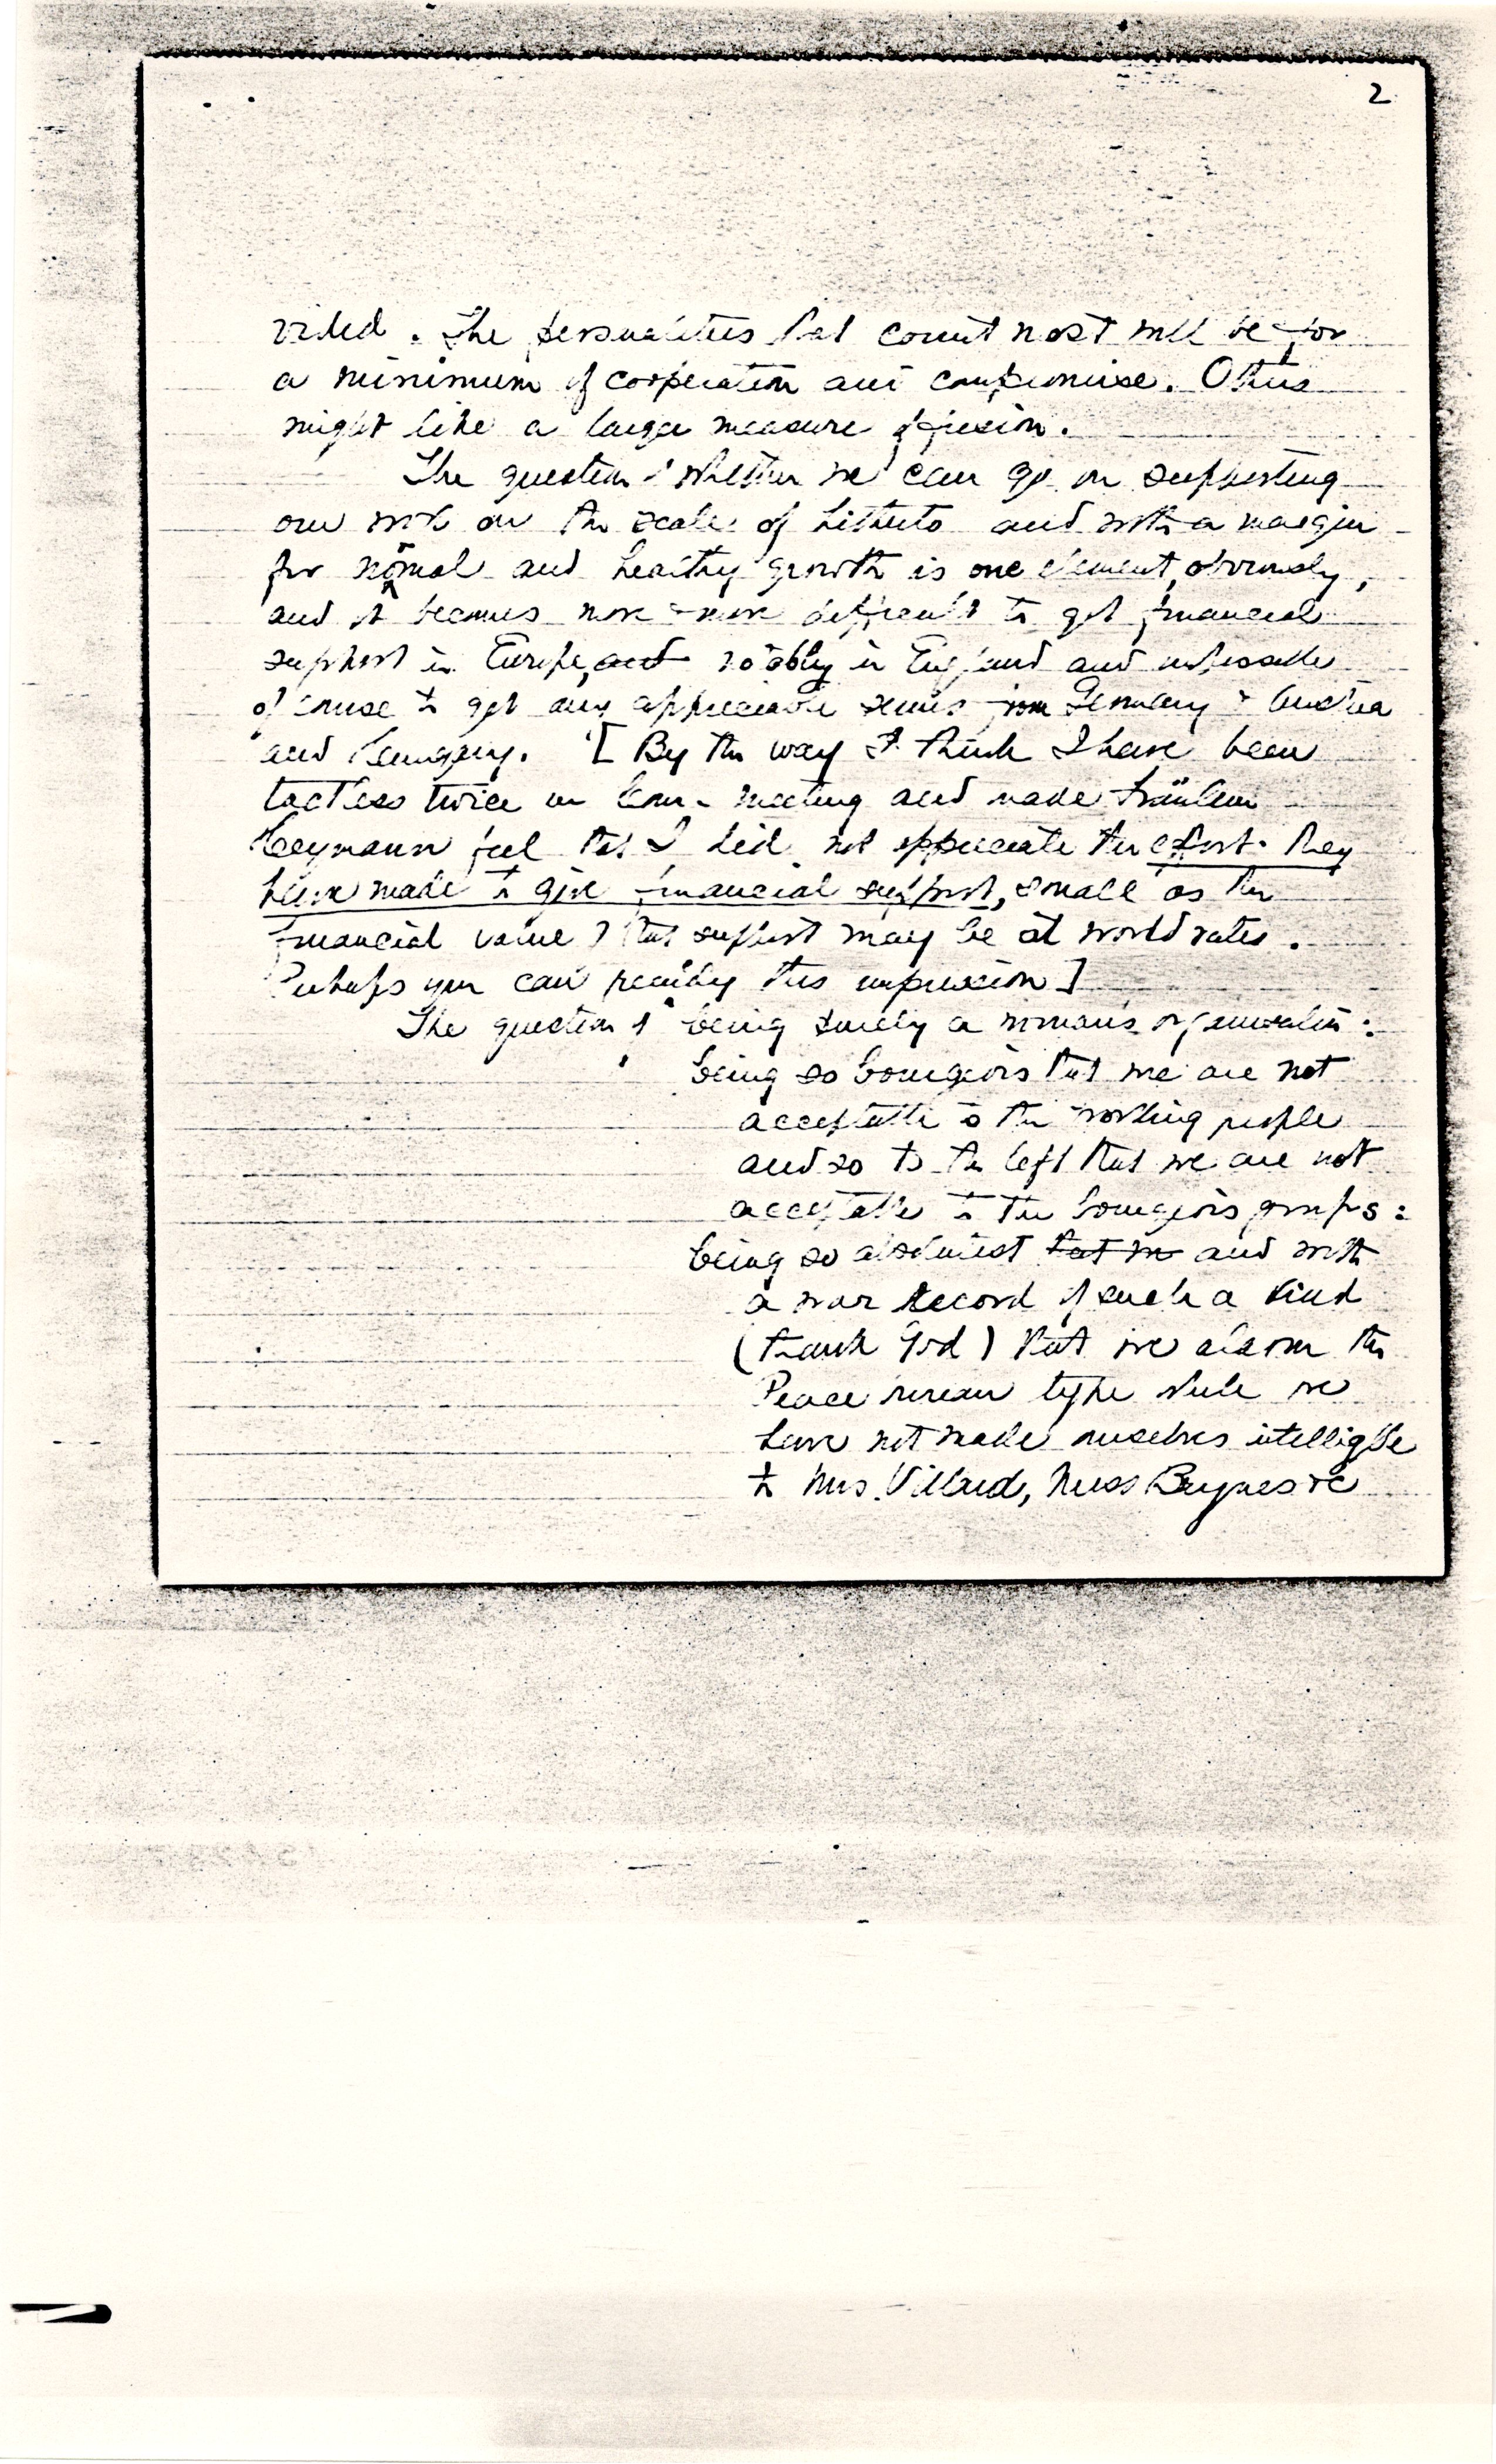 2
vided. The personalities that count most will be for
a minimum of cooperation and compromise. Others
might like a larger measure of fusion.
The question of whether we can go on supporting
our work on the scale of hitherto and with a margin
for normal and healthy growth is one element, obviously,
and it becomes more & more difficult to get financial
support in Europe, and notably in England and impossible
of course to get any appreciable sums from Germany & Austria
and Hungary. [By the way I think I have been
tactless twice in Com. meeting and made Fräulein
Heymann feel that I did not appreciate the effort they
have made to give financial support, small as the
financial value of that support may be at world rates.
Perhaps you can remedy this impression]
The question of being purely a woman's organization:
being so bourgeois that we are not
acceptable to the working people
and so to the left that we are not
acceptable to the bourgeois groups:
being so absolutist that we and with
a war record of such a kind
(thank God) that we alarm the
Peace bureau type while we
have not made ourselves intelligble
to Mrs. Villard, Miss &c